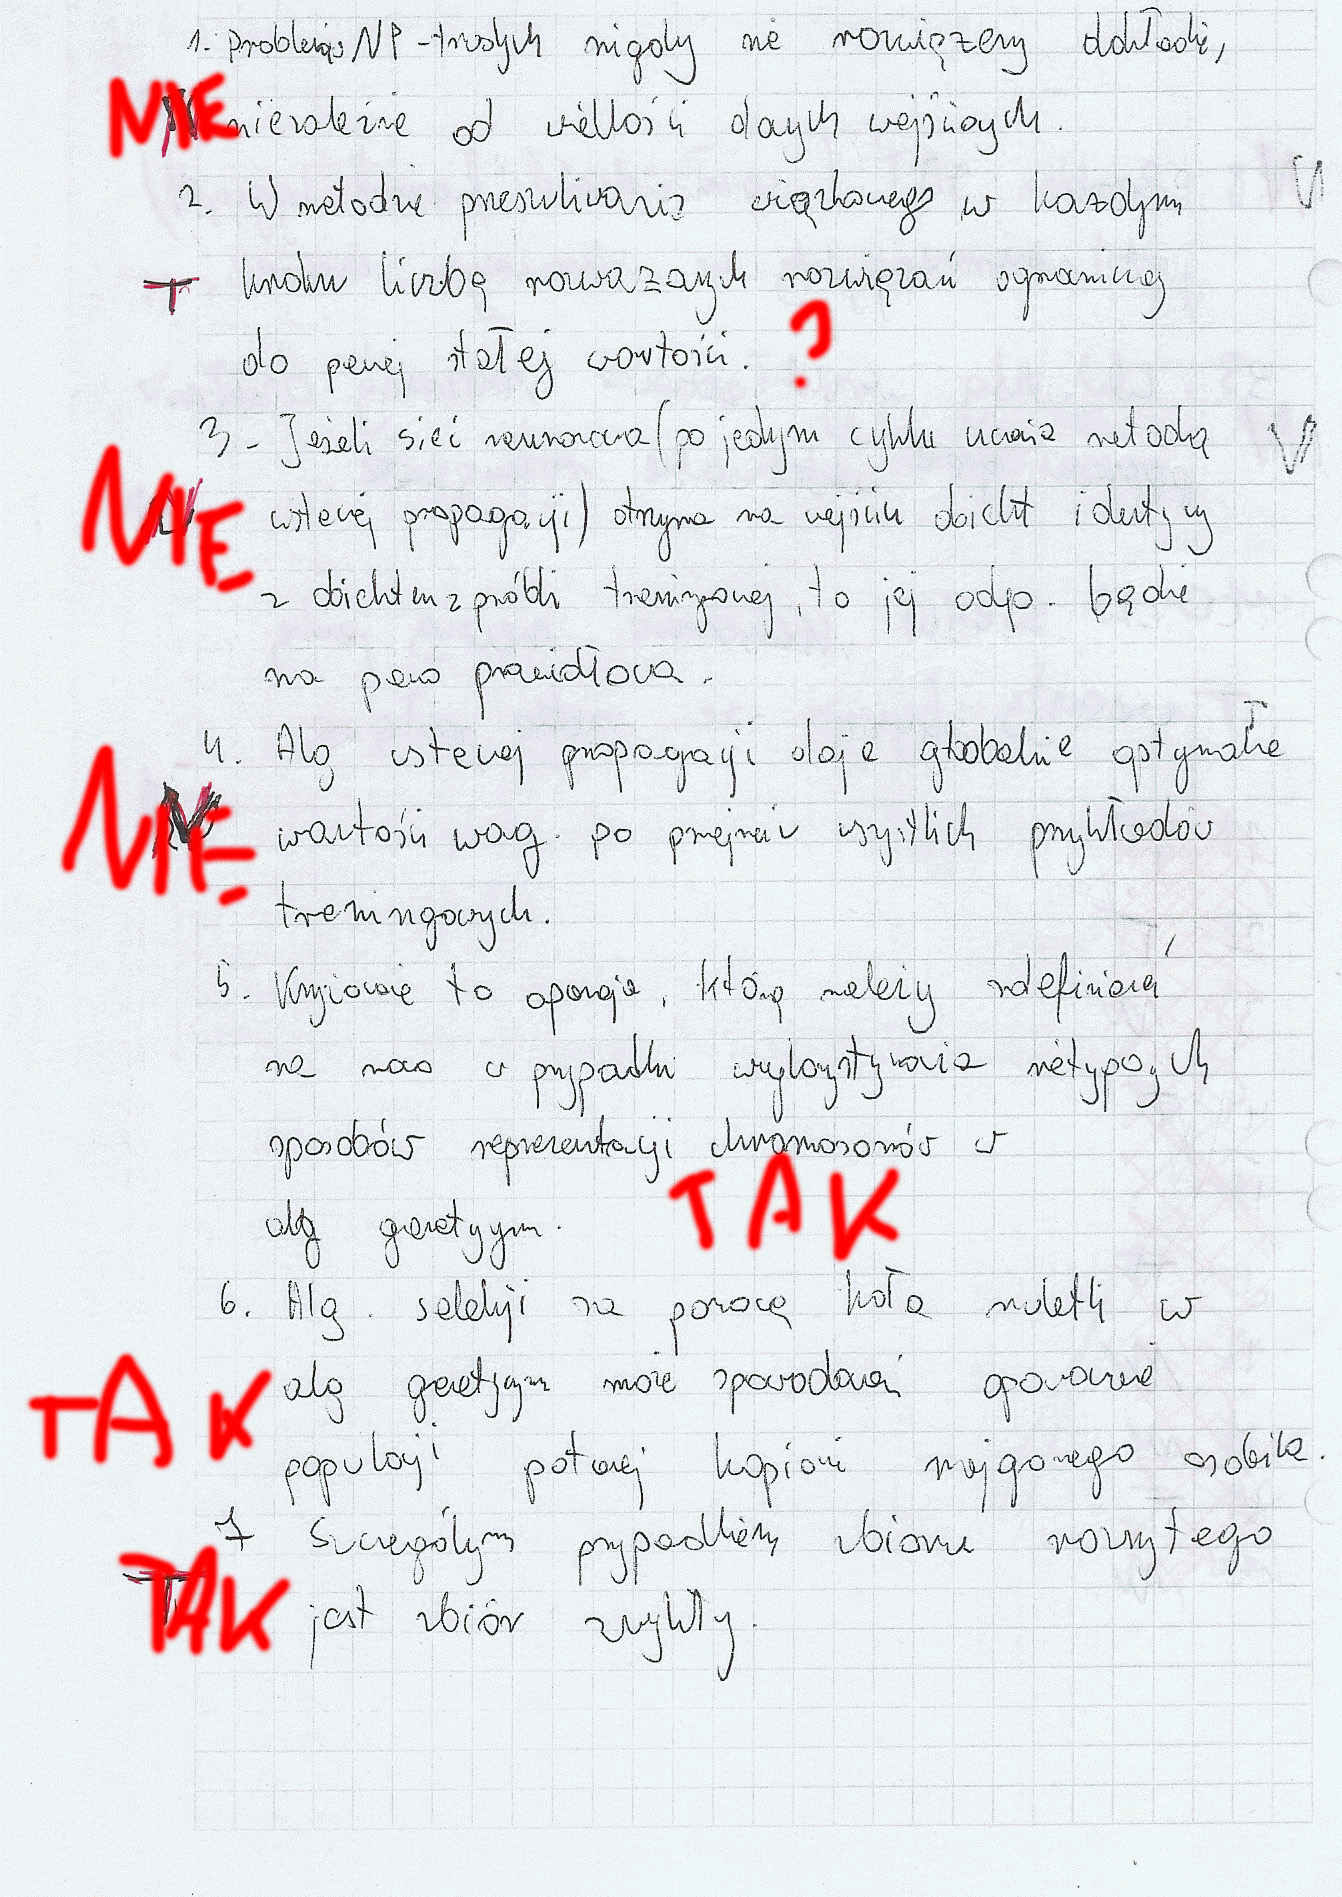 1. Problemów NP-trudnych nigdy nie rozwiążemy dokładnie,
NIE niezależnie od wielkości danych wejściowych.
2. W metodzie przeszukiwania wiązkowego w każdym
T kroku liczbę rozważanych rozwiązań ograniczaj
do pewnej stałej wartości. ?
3- Jeżeli sieć neuronowa (po jednym cyklu uczenia metodą
NIE wstecznej propagacji) otrzyma na wejściu obiekt identyczny
z obiektem z próbki treningowej, to jej odp. będzie
na pewno prawidłowa.
4. Alg wstecznej propagacji daje globalnie optymalne
NIE wartości wag. po przejrzeniu wszystkich przykładów
treningowych.
5. Krzyżowanie to operacja, którą należy zdefiniować
na nowo w przypadku wykorzystywania nietypowych
sposobów reprezentacji chromosomów w
alg genetycznym. TAK
6. Alg. selekcji za pomocą koła ruletki w
TAK alg genetycznym może spowodować opanowanie
populacji potomnej kopiami najgorszego osobnika.
7 Szczególnym przypadkiem zbioru rozmytego
TAK jest zbiór zwykły.